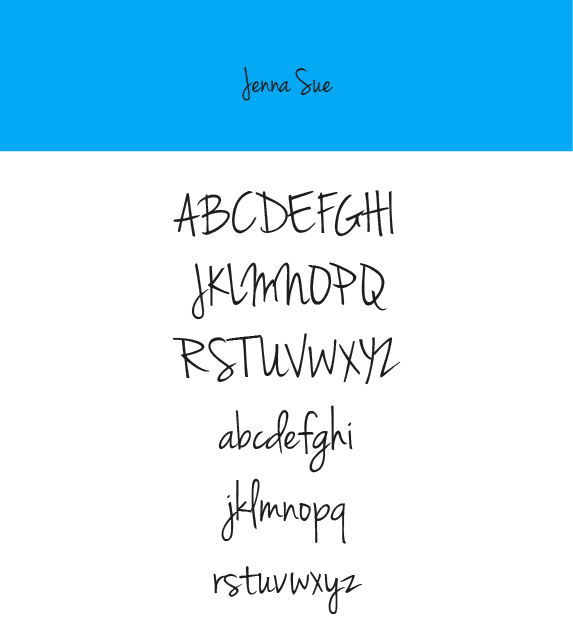 Jenna Sue
ABCDEFGHI
JKLMNOPQ
RSTUVWXYZ
abcdefghi
jklmnopq
rstuvwxyz